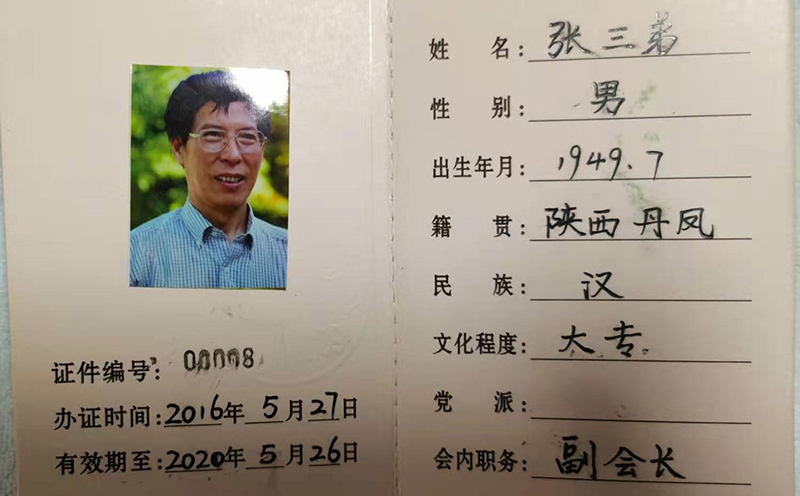 证件编号：00008
办证时间：2016年5月27日
有效期至：2020年5月26日
姓名：张三弟
性别：男
出生年月：1949.7
籍贯：陕西丹凤
民族：汉
文化程度：大专
党派：
会内职务：副会长